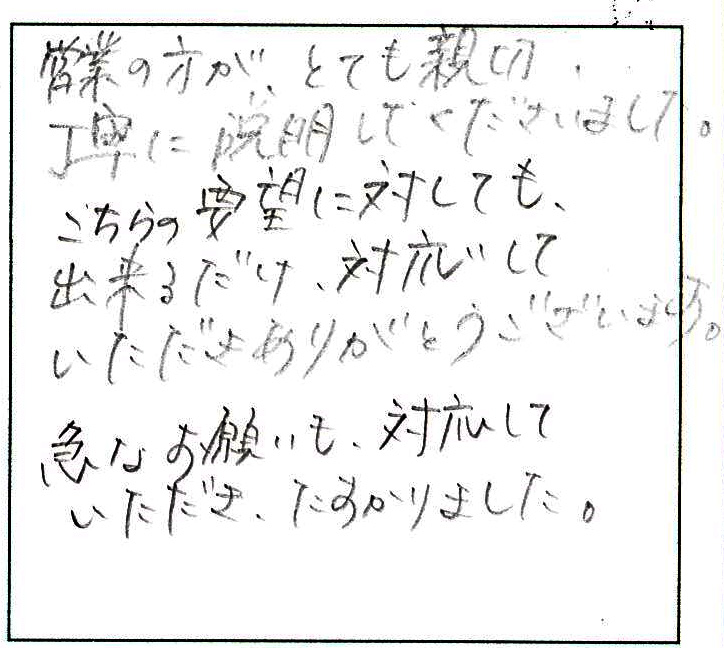 営業の方が、とても親切、
丁寧に説明してくださいました。
こちらの要望に対しても、
出来るだけ、対応して
いただきありがとうございます。
急なお願いも、対応して
いただき、たすかりました。